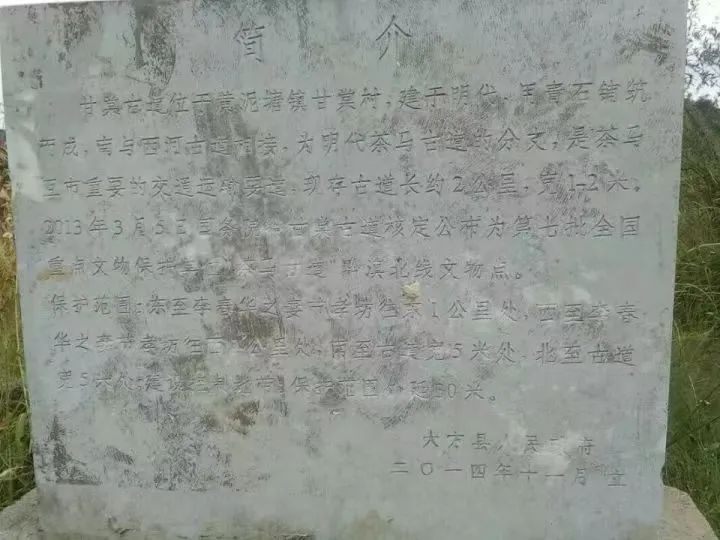 简 介
甘棠古道位于黄泥塘镇甘棠村，建于明代，用青石铺筑
而成，南与西河古道相接，为明代茶马古道的分支，是茶马
互市重要的交通运输要道，现存古道长约2公里，宽1-2米。
2013年3月5日国务院将甘棠古道核定公布为第七批全国
重点文物保护单位"茶马古道"黔滇北线文物点。
保护范围：东至李春华之妻节孝坊往东1公里处，西至李春
华之妻节孝坊往西 公里处，南至古道宽5米处，北至古道
宽5米处；建设控制地带：保护范围外延50米。
大方县人民政府
二〇一四年十一月 立